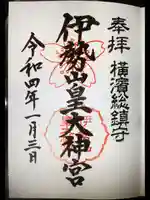 奉拝
横濱総鎮守
伊勢山皇大神宮
令和四年一月三日